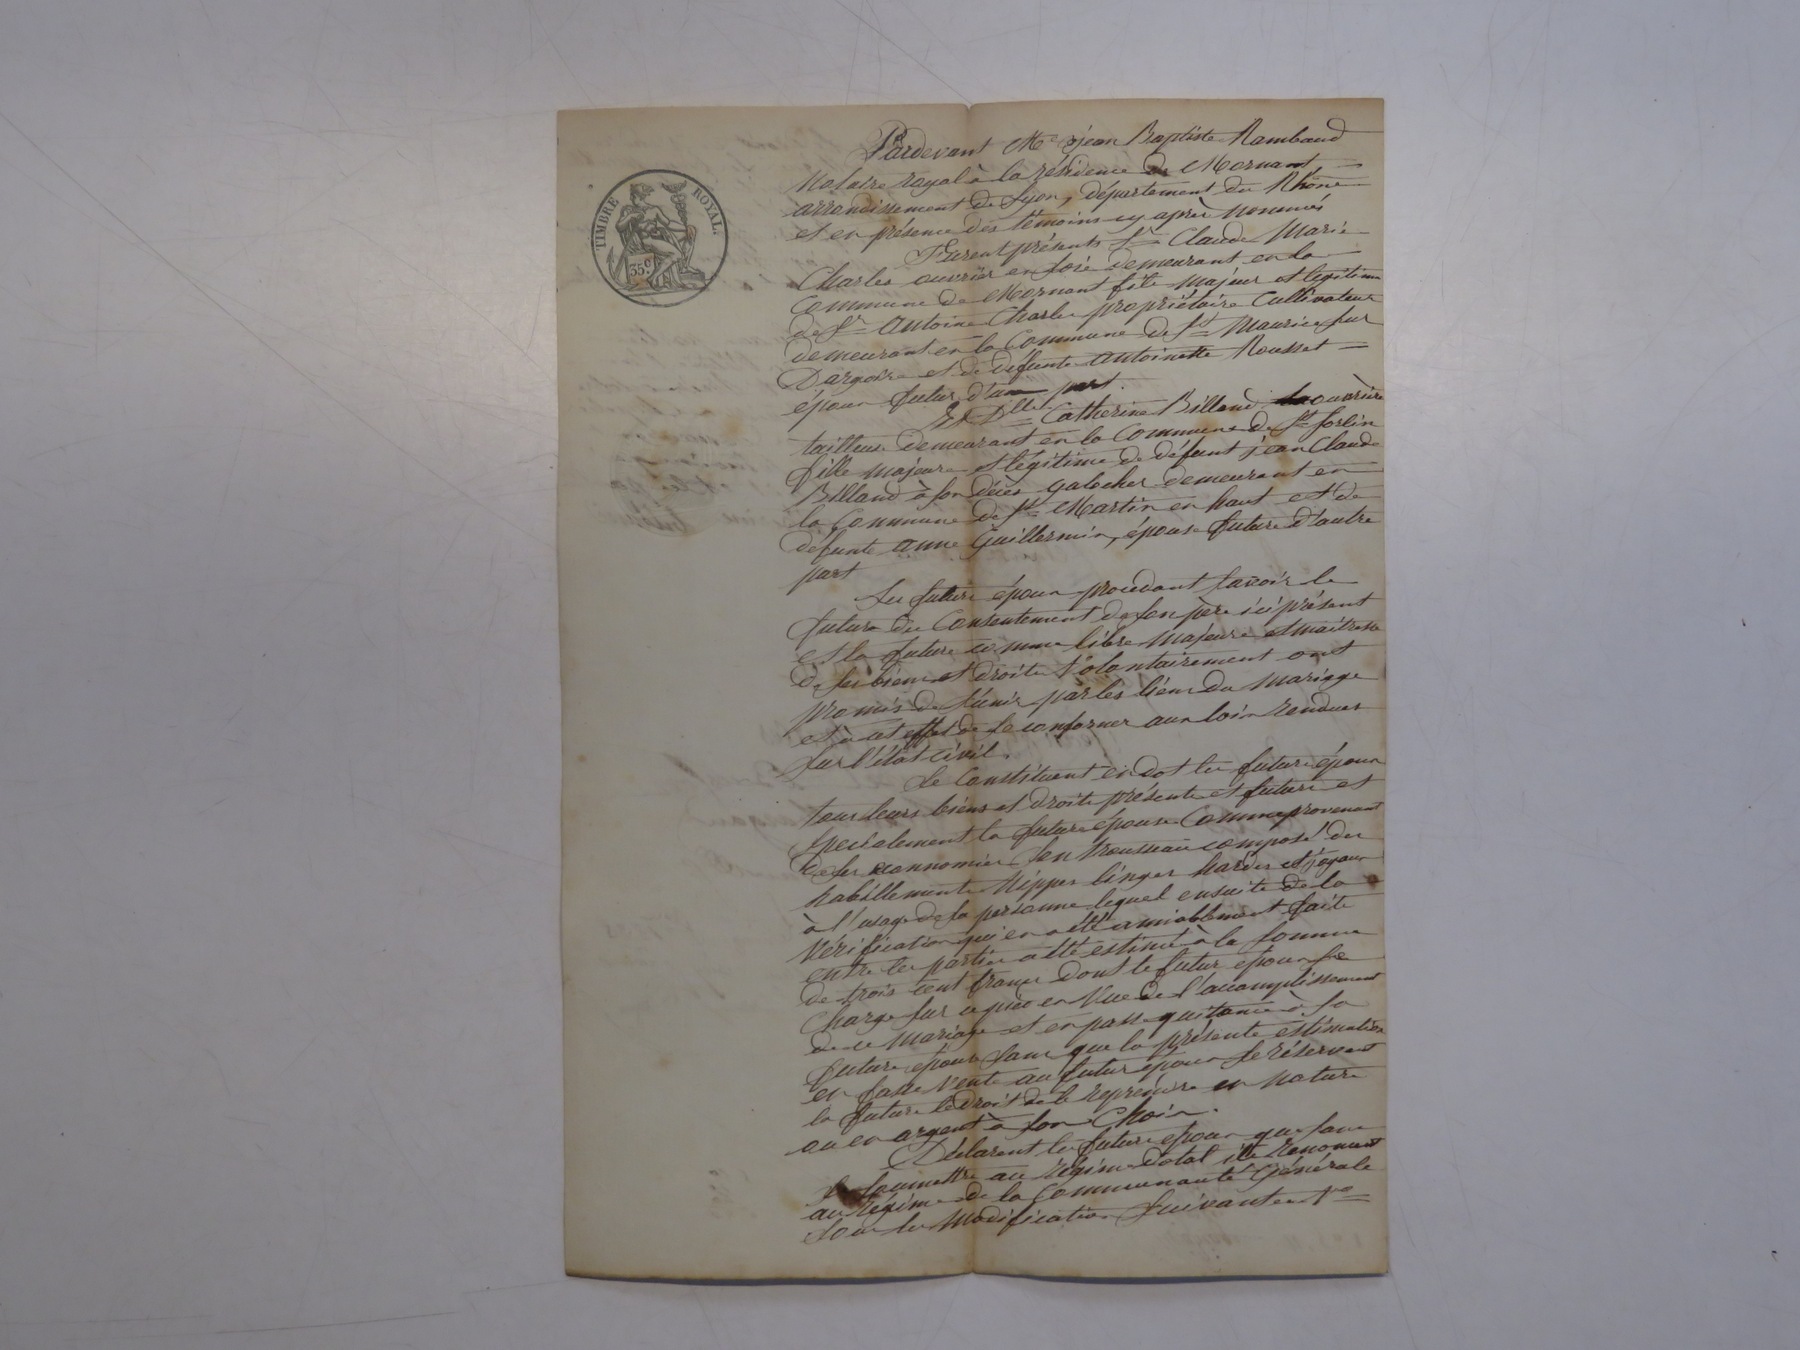 TIMBRE ROYAL.
35.c
Pardevant Me jean Baptiste Rambaud
Notaire royal à la résidence de Mornant,
arrondissement de Lyon, département du Rhône
et en présence des témoins cy après nommés
Furent présents Sr Claude Marie
Charles ouvrier en soie demeurant en la
Commune de Mornant fils majeur et légitime
de Sr Antoine Charles propriétaire Cultivateur
demeurant en la Commune de St Maurice sur
Dargoire et de défunte Antoinette Rousset
époux futur d'une part.
Et Dlle Catherine Billand ouvrière
tailleuse demeurant en la Commune de St Sorlin
fille majeure et légitime de défunt jean Claude
Billand à son décès galocher demeurant en
la Commune de St Martin en haut et de
défunte anne Guillermin, épouse future d'autre
part
Les futurs époux procédant savoir le
futur du Consentement de son père ici présent
et la future comme libre majeure et maitresse
de ses biens et droits Volontairement ont
promis de s'unir par les liens du Mariage
et à cet effet de se conformer aux loix rendues
sur l'état civil.
Se Constituent en dot les futurs époux
tous leurs biens et droits présents et futurs et
spécialement la future épouse Comme provenant
de ses économies son trousseau composé des
habillements Nippes linges hardes et joyaux
à l'usage de sa personne lequel ensuite de la
Vérification qui en a été amiablement faite
entre les parties a été estimé à la somme
de trois cent francs dont le futur époux se
charge sur ce pied en Vue de l'accomplissement
de ce mariage et en passe quitance à sa
future épouse sans que la présente estimation
en fasse Vente au futur époux se réservant
la future le droit de le reprendre en nature
ou en argent à son Choix.
Déclarent les futurs époux que sans
se soumettre au régime dotal ils renoncent
au régime de la Communauté Générale
sous les Modifications suivantes 1o